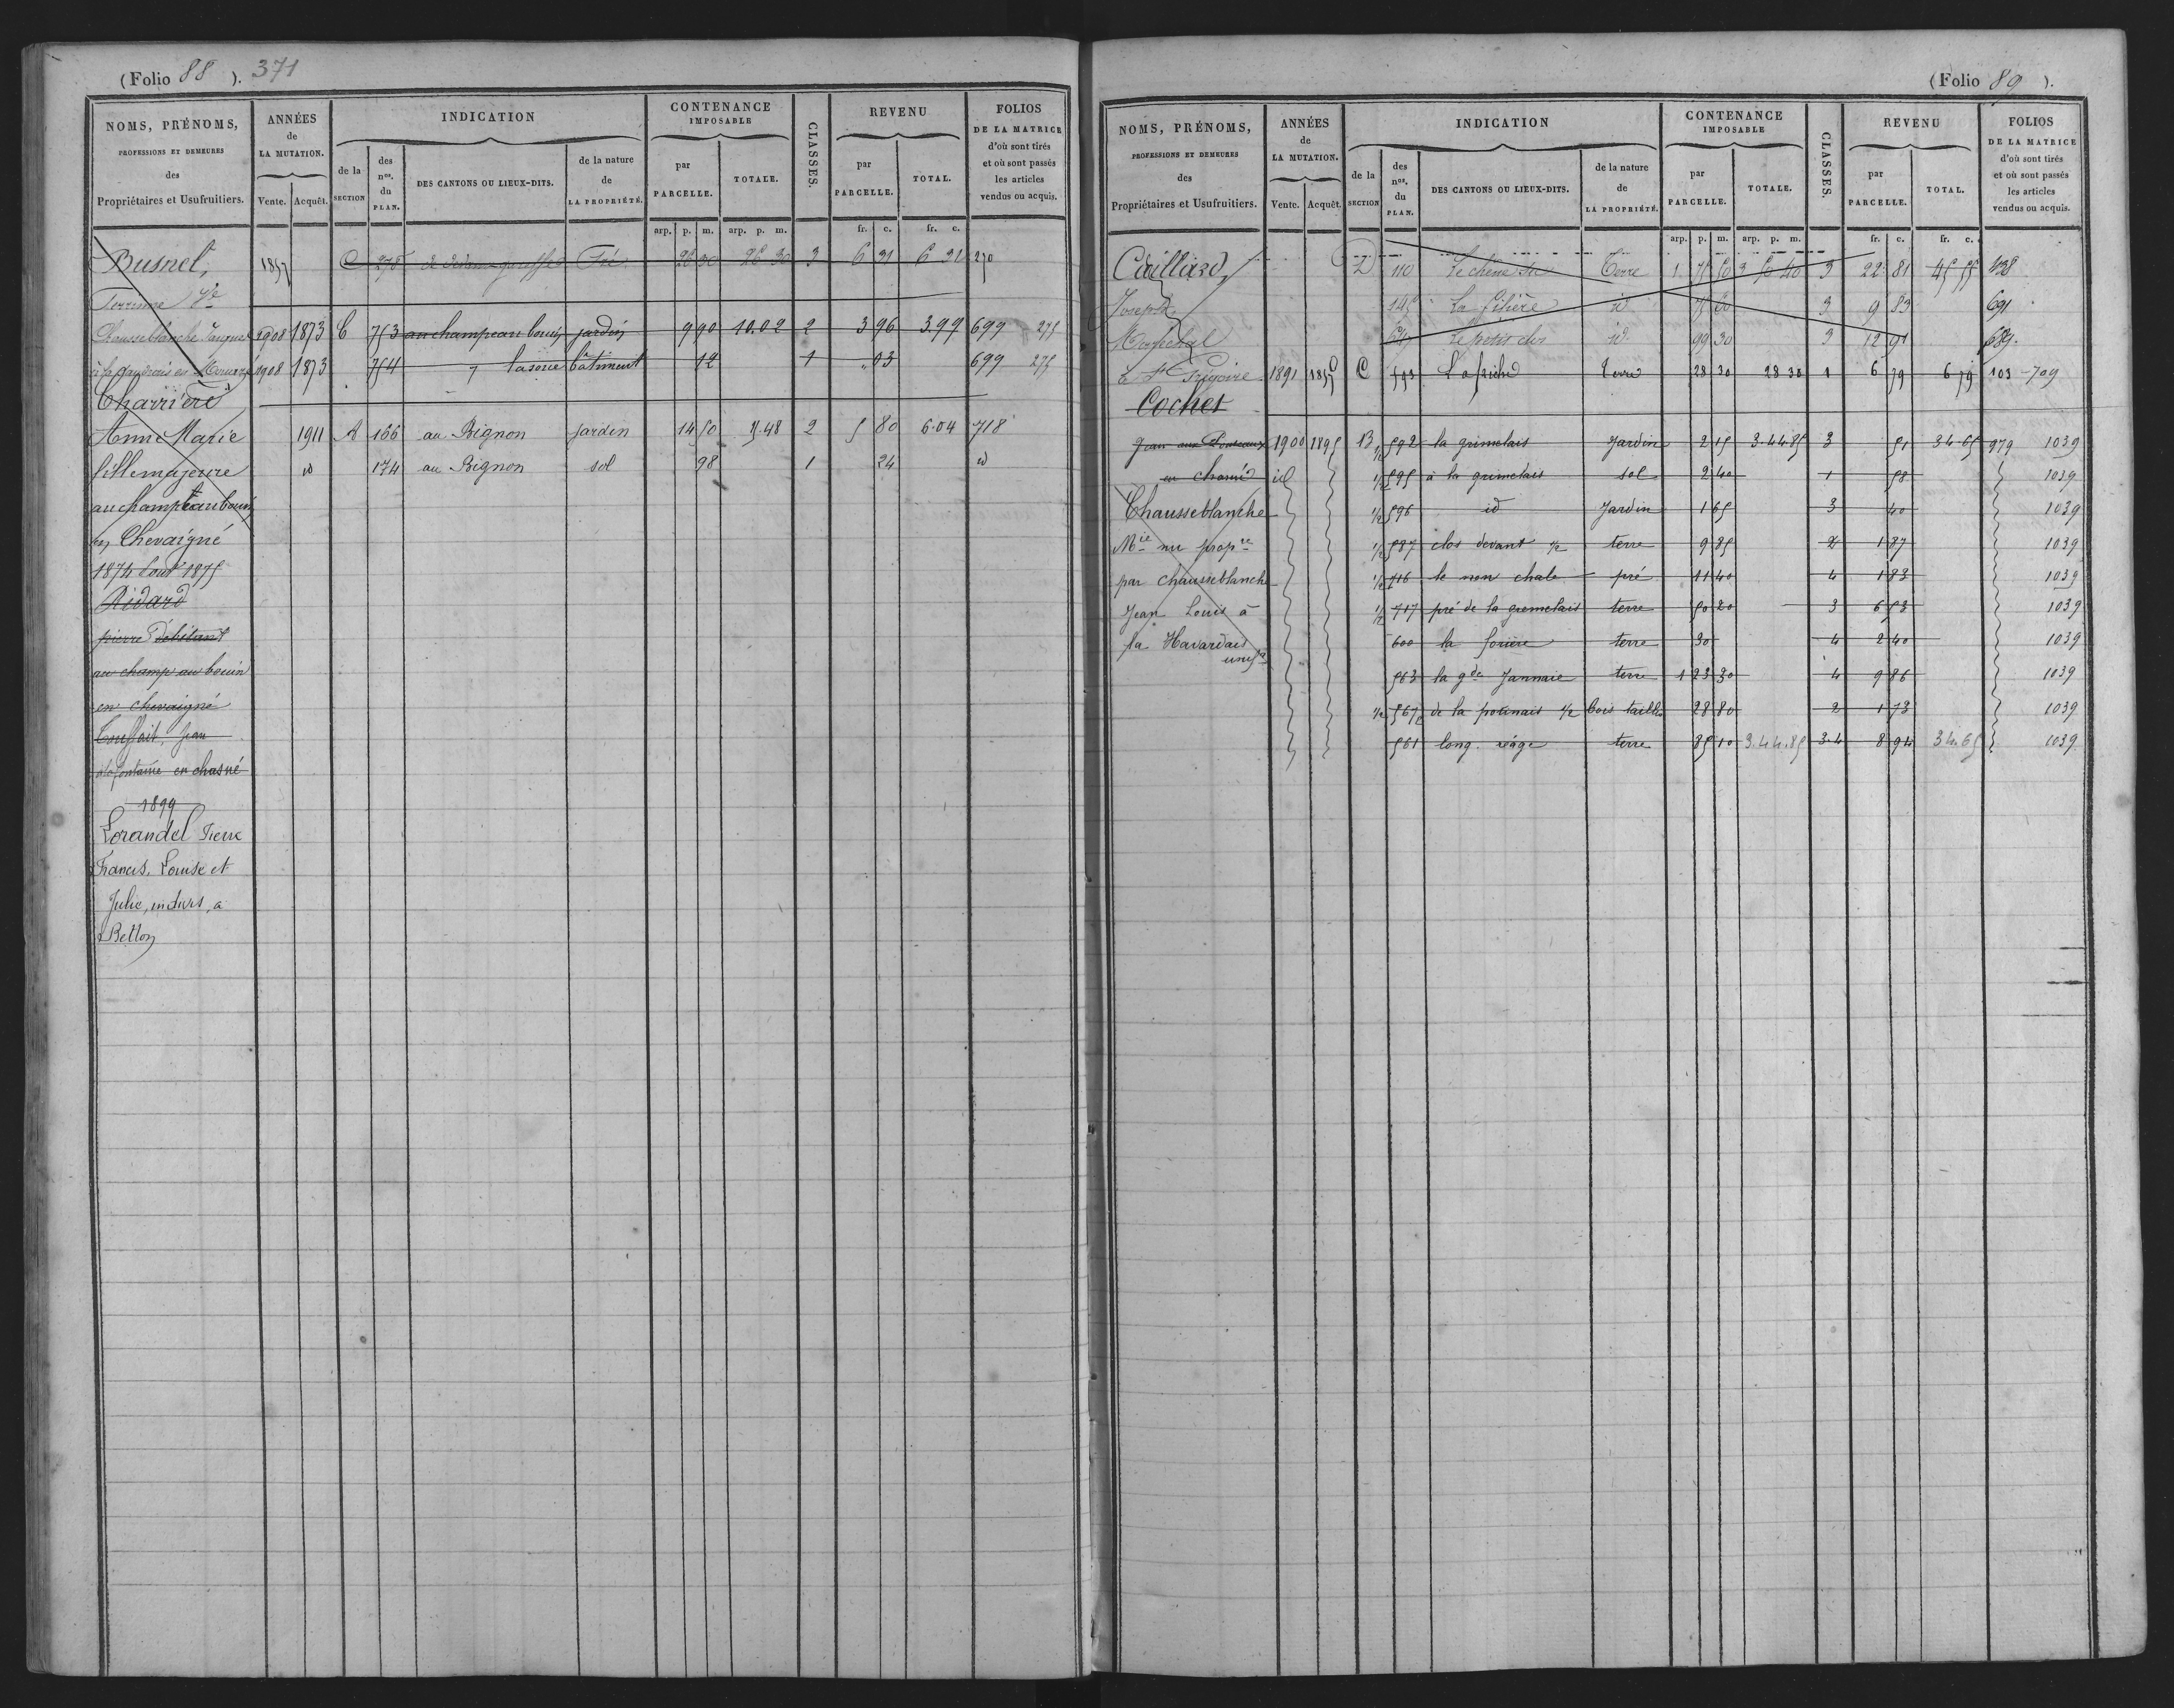 (Folio 88). 371
NOMS, PRÉNOMS, PROFESSIONS ET DEMEURES des Propriétaires et Usufruitiers.
ANNÉES de LA MUTATION. Vente. Acquêt.
INDICATION
de la SECTION
des nos. du PLAN.
DES CANTONS OU LIEUX-DITS.
de la nature de LA PROPRIÉTÉ.
CONTENANCE IMPOSABLE
par PARCELLE. TOTALE.
CLASSES.
REVENU
par PARCELLE. TOTAL.
FOLIOS DE LA MATRICE d'où sont tirés et où sont passés les articles vendus ou acquis.
arp. p. m. arp. p. m. fr. c. fr. c.
Busnel, 1857 C 278 Pré 26 30 26 30 3 6 31 6 31 270
Perrine Ve
Chausseblanche 1908 1873 C 753 au champeau bouin jardin 9 90 10.02 2 3 96 3.99 699 275
1908 1873 754 bâtiment 12 1 " 03 699 275
Charrière
Anne Marie 1911 A 166 au Bignon jardin 14 50 15.48 2 5 80 6.04 718
fille majeure id 174 au Bignon sol 98 1 24 id
au champeau bouin
en Chevaigné
1874 1875
Ridard
pierre débitant
au champ au bouin
en chevaigné
jean
fontaine en chasné
1899
Lorandel Pierre
Francis, Louise et
Julie, indivis, a
Betton
(Folio 89).
NOMS, PRÉNOMS, PROFESSIONS ET DEMEURES des Propriétaires et Usufruitiers.
ANNÉES de LA MUTATION. Vente. Acquêt.
INDICATION
de la SECTION
des nos. du PLAN.
DES CANTONS OU LIEUX-DITS.
de la nature de LA PROPRIÉTÉ.
CONTENANCE IMPOSABLE
par PARCELLE. TOTALE.
CLASSES.
REVENU
par PARCELLE. TOTAL.
FOLIOS DE LA MATRICE d'où sont tirés et où sont passés les articles vendus ou acquis.
arp. p. m. arp. p. m. fr. c. fr. c.
Caillard, D 110 Le chêne Terre 1. 75 50 3 50 40 3 22 81 45 55 438
Joseph 145 La filière id 75 60 3 9 83 691
Marechal Le petit clos id 99 30 3 12 91 689.
à St Grégoire 1891 1857 C 593 La friche terre 28 30 28 30 1 6 79 6 79 103 - 709
Cochet
Jean aux 1900 1895 B 1/2 592 la grimelais Jardin 2 15 3.44.85 3 51 34 65 979 1039
en chasné id 1/2 595 à la grimelais sol 2 40 1 58 1039
Chausseblanche 1/2 596 id Jardin 1 65 3 40 1039
Mie nu propre 1/2 587 clos devant 1/2 terre 9 85 2 1 87 1039
par chausseblanche 1/2 716 le non chale pré 11 40 4 1 83 1039
Jean Louis à 1/2 717 pré de la gremelais terre 50 20 3 6 53 1039
la Havardais 600 la forière terre 30 4 2 40 1039
usufr 563 la gde Jannaie terre 1 23 30 4 9 86 1039
1/2 567 de la potinais 1/2 bois taillis 28 80 2 1 73 1039
561 long réage terre 85 10 3.44.85 3.4 8 94 34.65 1039